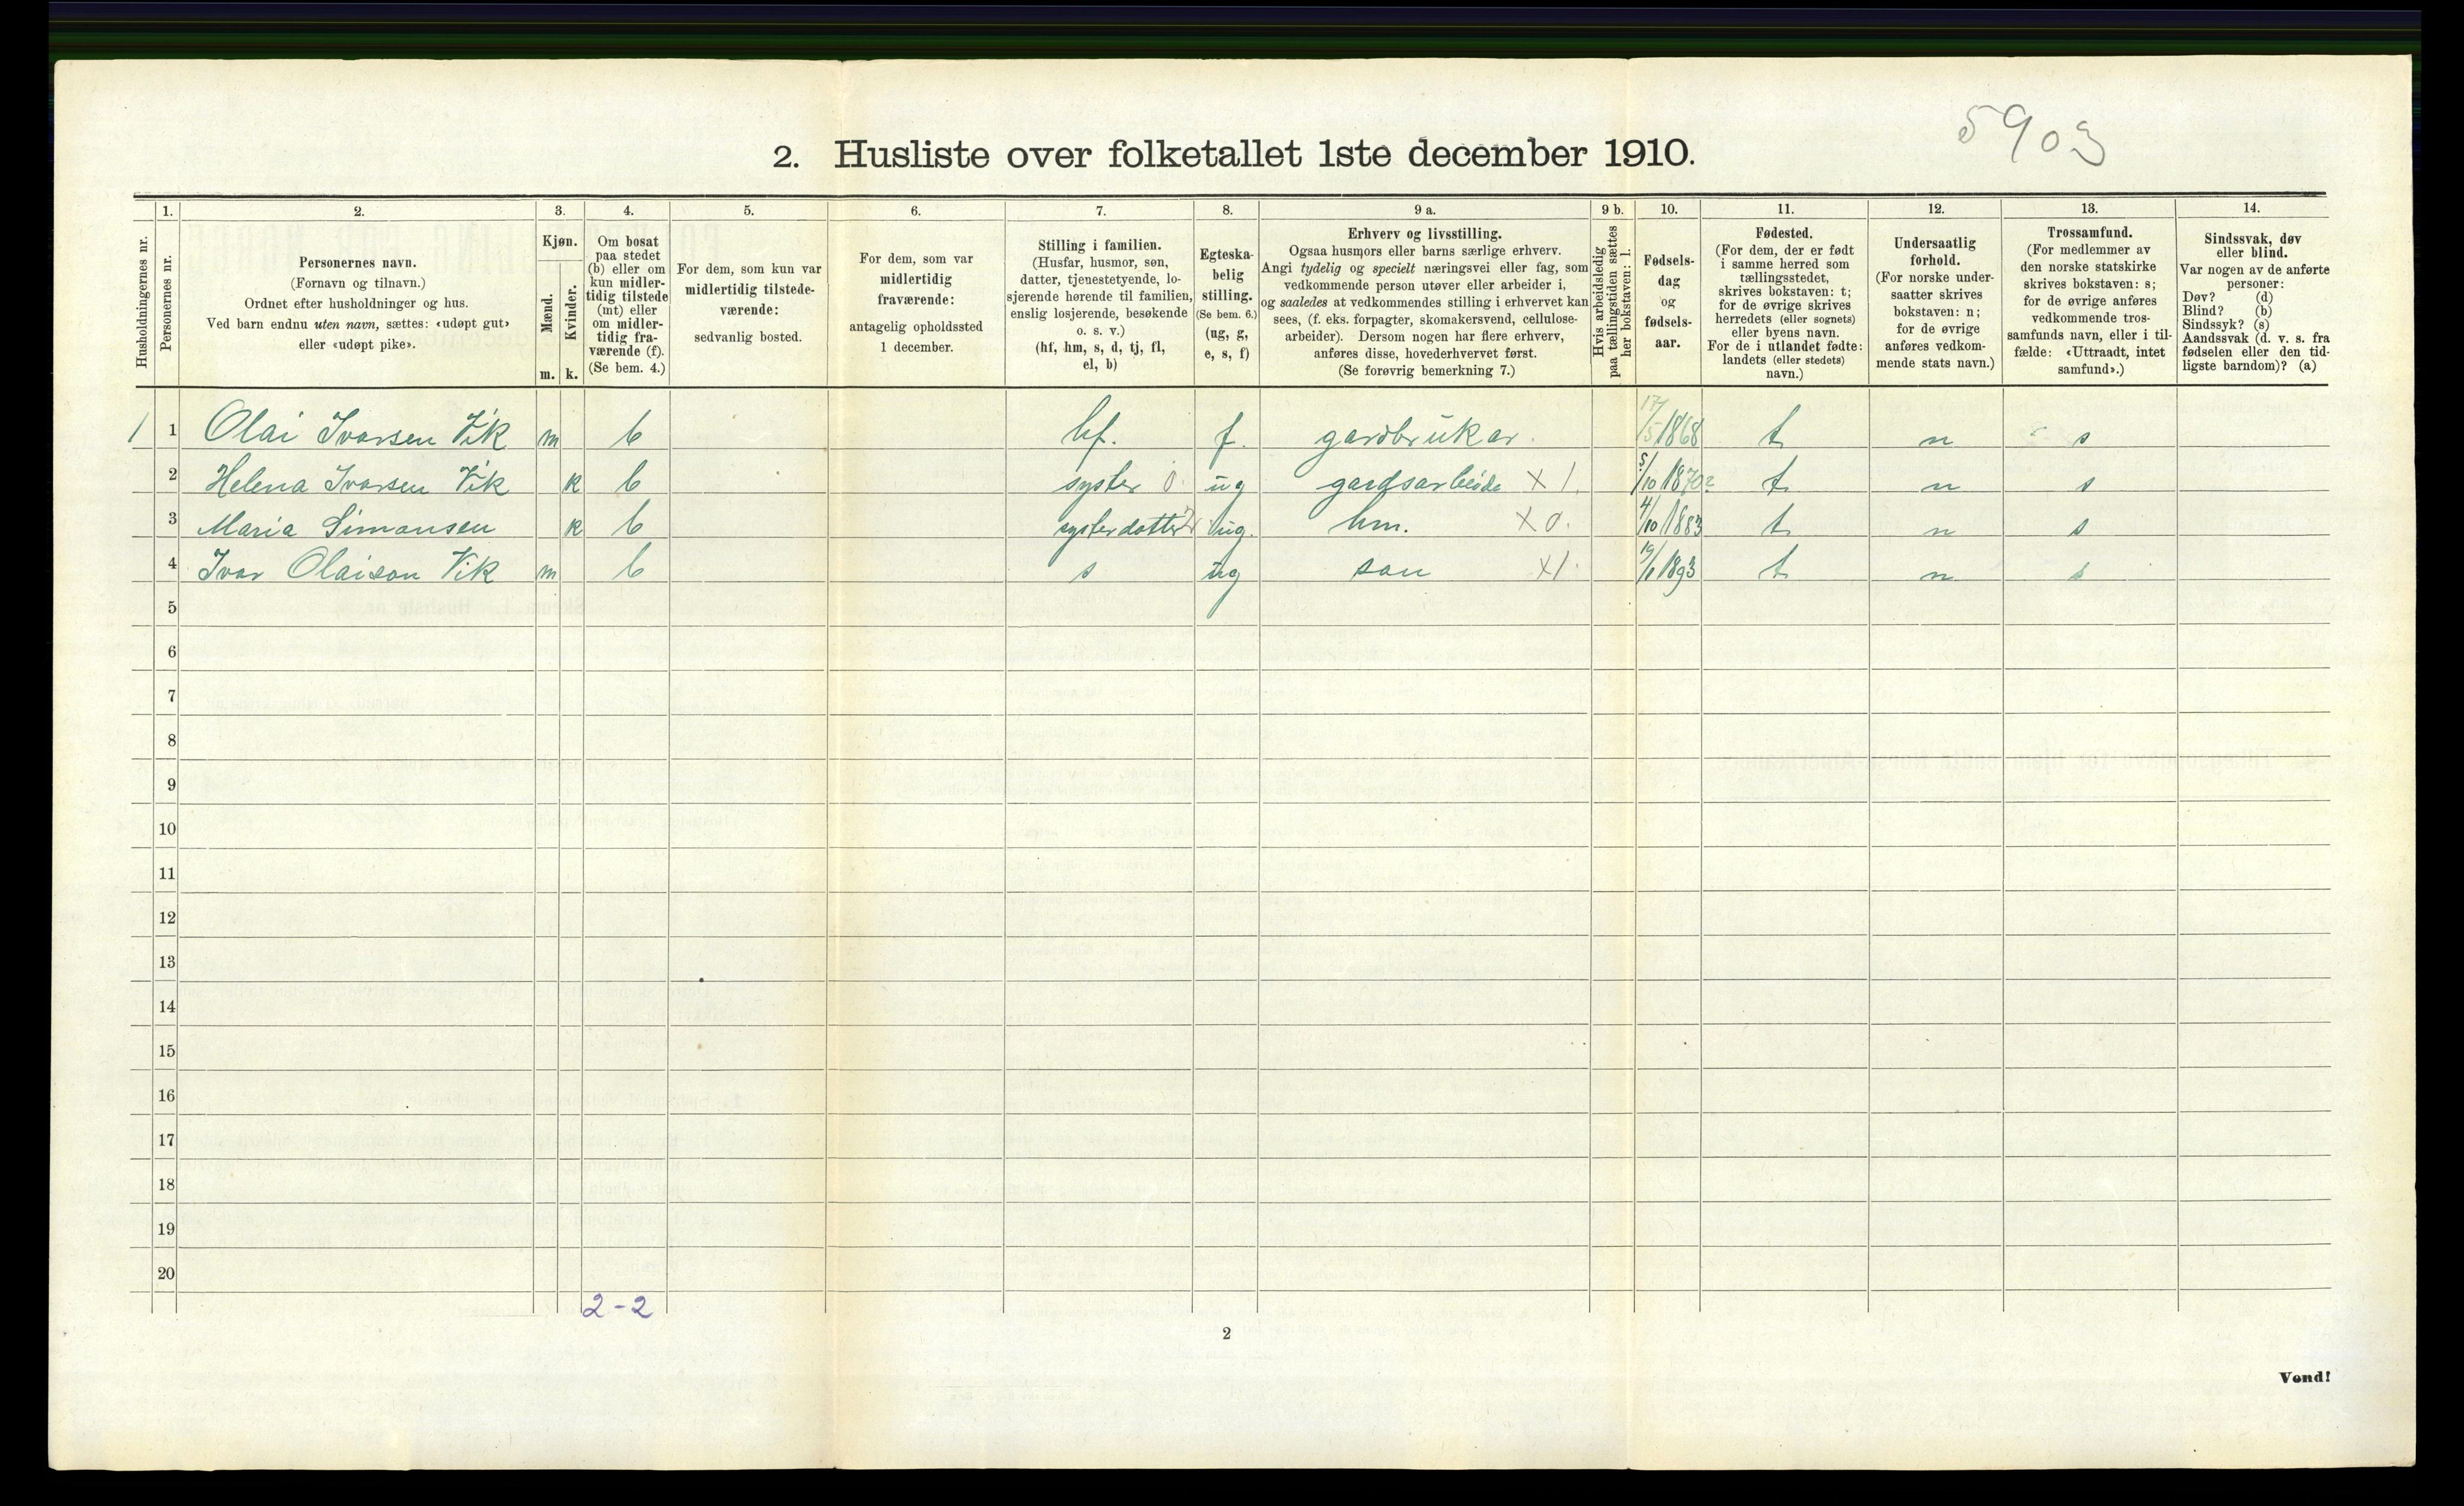 5903
2. Husliste over folketallet 1ste december 1910.
Husholdningernes nr.
1.
Personernes nr.
2.
Personernes navn.
(Fornavn og tilnavn.)
Ordnet efter husholdninger og hus.
Ved barn endnu uten navn, sættes: «udøpt gut»
eller «udøpt pike».
3.
Kjøn.
Mænd.
Kvinder.
m. k.
4.
Om bosat
paa stedet
(b) eller om
kun midler-
tidig tilstede
(mt) eller
om midler-
tidig fra-
værende (f).
(Se bem. 4.)
5.
For dem, som kun var
midlertidig tilstede-
værende:
sedvanlig bosted.
6.
For dem, som var
midlertidig
fraværende:
antagelig opholdssted
1 december.
7.
Stilling i familien.
(Husfar, husmor, søn,
datter, tjenestetyende, lo-
sjerende hørende til familien,
enslig losjerende, besøkende
o. s. v.)
(hf, hm, s, d, tj, fl,
el, b)
8.
Egteska-
belig
stilling.
(Se bem. 6.)
(ug, g,
e, s, f)
9 a.
Erhverv og livsstilling.
Ogsaa husmors eller barns særlige erhverv.
Angi tydelig og specielt næringsvei eller fag, som
vedkommende person utøver eller arbeider i,
og saaledes at vedkommendes stilling i erhvervet kan
sees, (f. eks. forpagter, skomakersvend, cellulose-
arbeider). Dersom nogen har flere erhverv,
anføres disse, hovederhvervet først.
(Se forøvrig bemerkning 7.)
9 b.
Hvis arbeidsledig
paa tællingstiden sættes
her bokstaven: l.
10.
Fødsels-
dag
og
fødsels-
aar.
11.
Fødested.
(For dem, der er født
i samme herred som
tællingsstedet,
skrives bokstaven: t;
for de øvrige skrives
herredets (eller sognets)
eller byens navn.
For de i utlandet fødte:
landets (eller stedets)
navn.)
12.
Undersaatlig
forhold.
(For norske under-
saatter skrives
bokstaven: n;
for de øvrige
anføres vedkom-
mende stats navn.)
13.
Trossamfund.
(For medlemmer av
den norske statskirke
skrives bokstaven: s;
for de øvrige anføres
vedkommende tros-
samfunds navn, eller i til-
fælde: «Uttraadt, intet
samfund».)
14.
Sindssvak, døv
eller blind.
Var nogen av de anførte
personer:
Døv? (d)
Blind? (b)
Sindssyk? (s)
Aandssvak (d. v. s. fra
fødselen eller den tid-
ligste barndom)? (a)
1 1 Olai Ivarsen Vik m b hf. f. gardbrukar. 17/5 1868 t n s
2 Helena Ivarsen Vik k b syster 0. ug gardsarbeide X 1. 5/10 1870? t n s
3 Maria Simonsen k b systerdotter ug. hm. X 0. 4/10 1883 t n s
4 Ivar Olaison Vik m b s ug son X1. 1893 t n s
5
6
7
8
9
10
11
12
13
14
15
16
17
18
19
20
2-2
2
Vend!